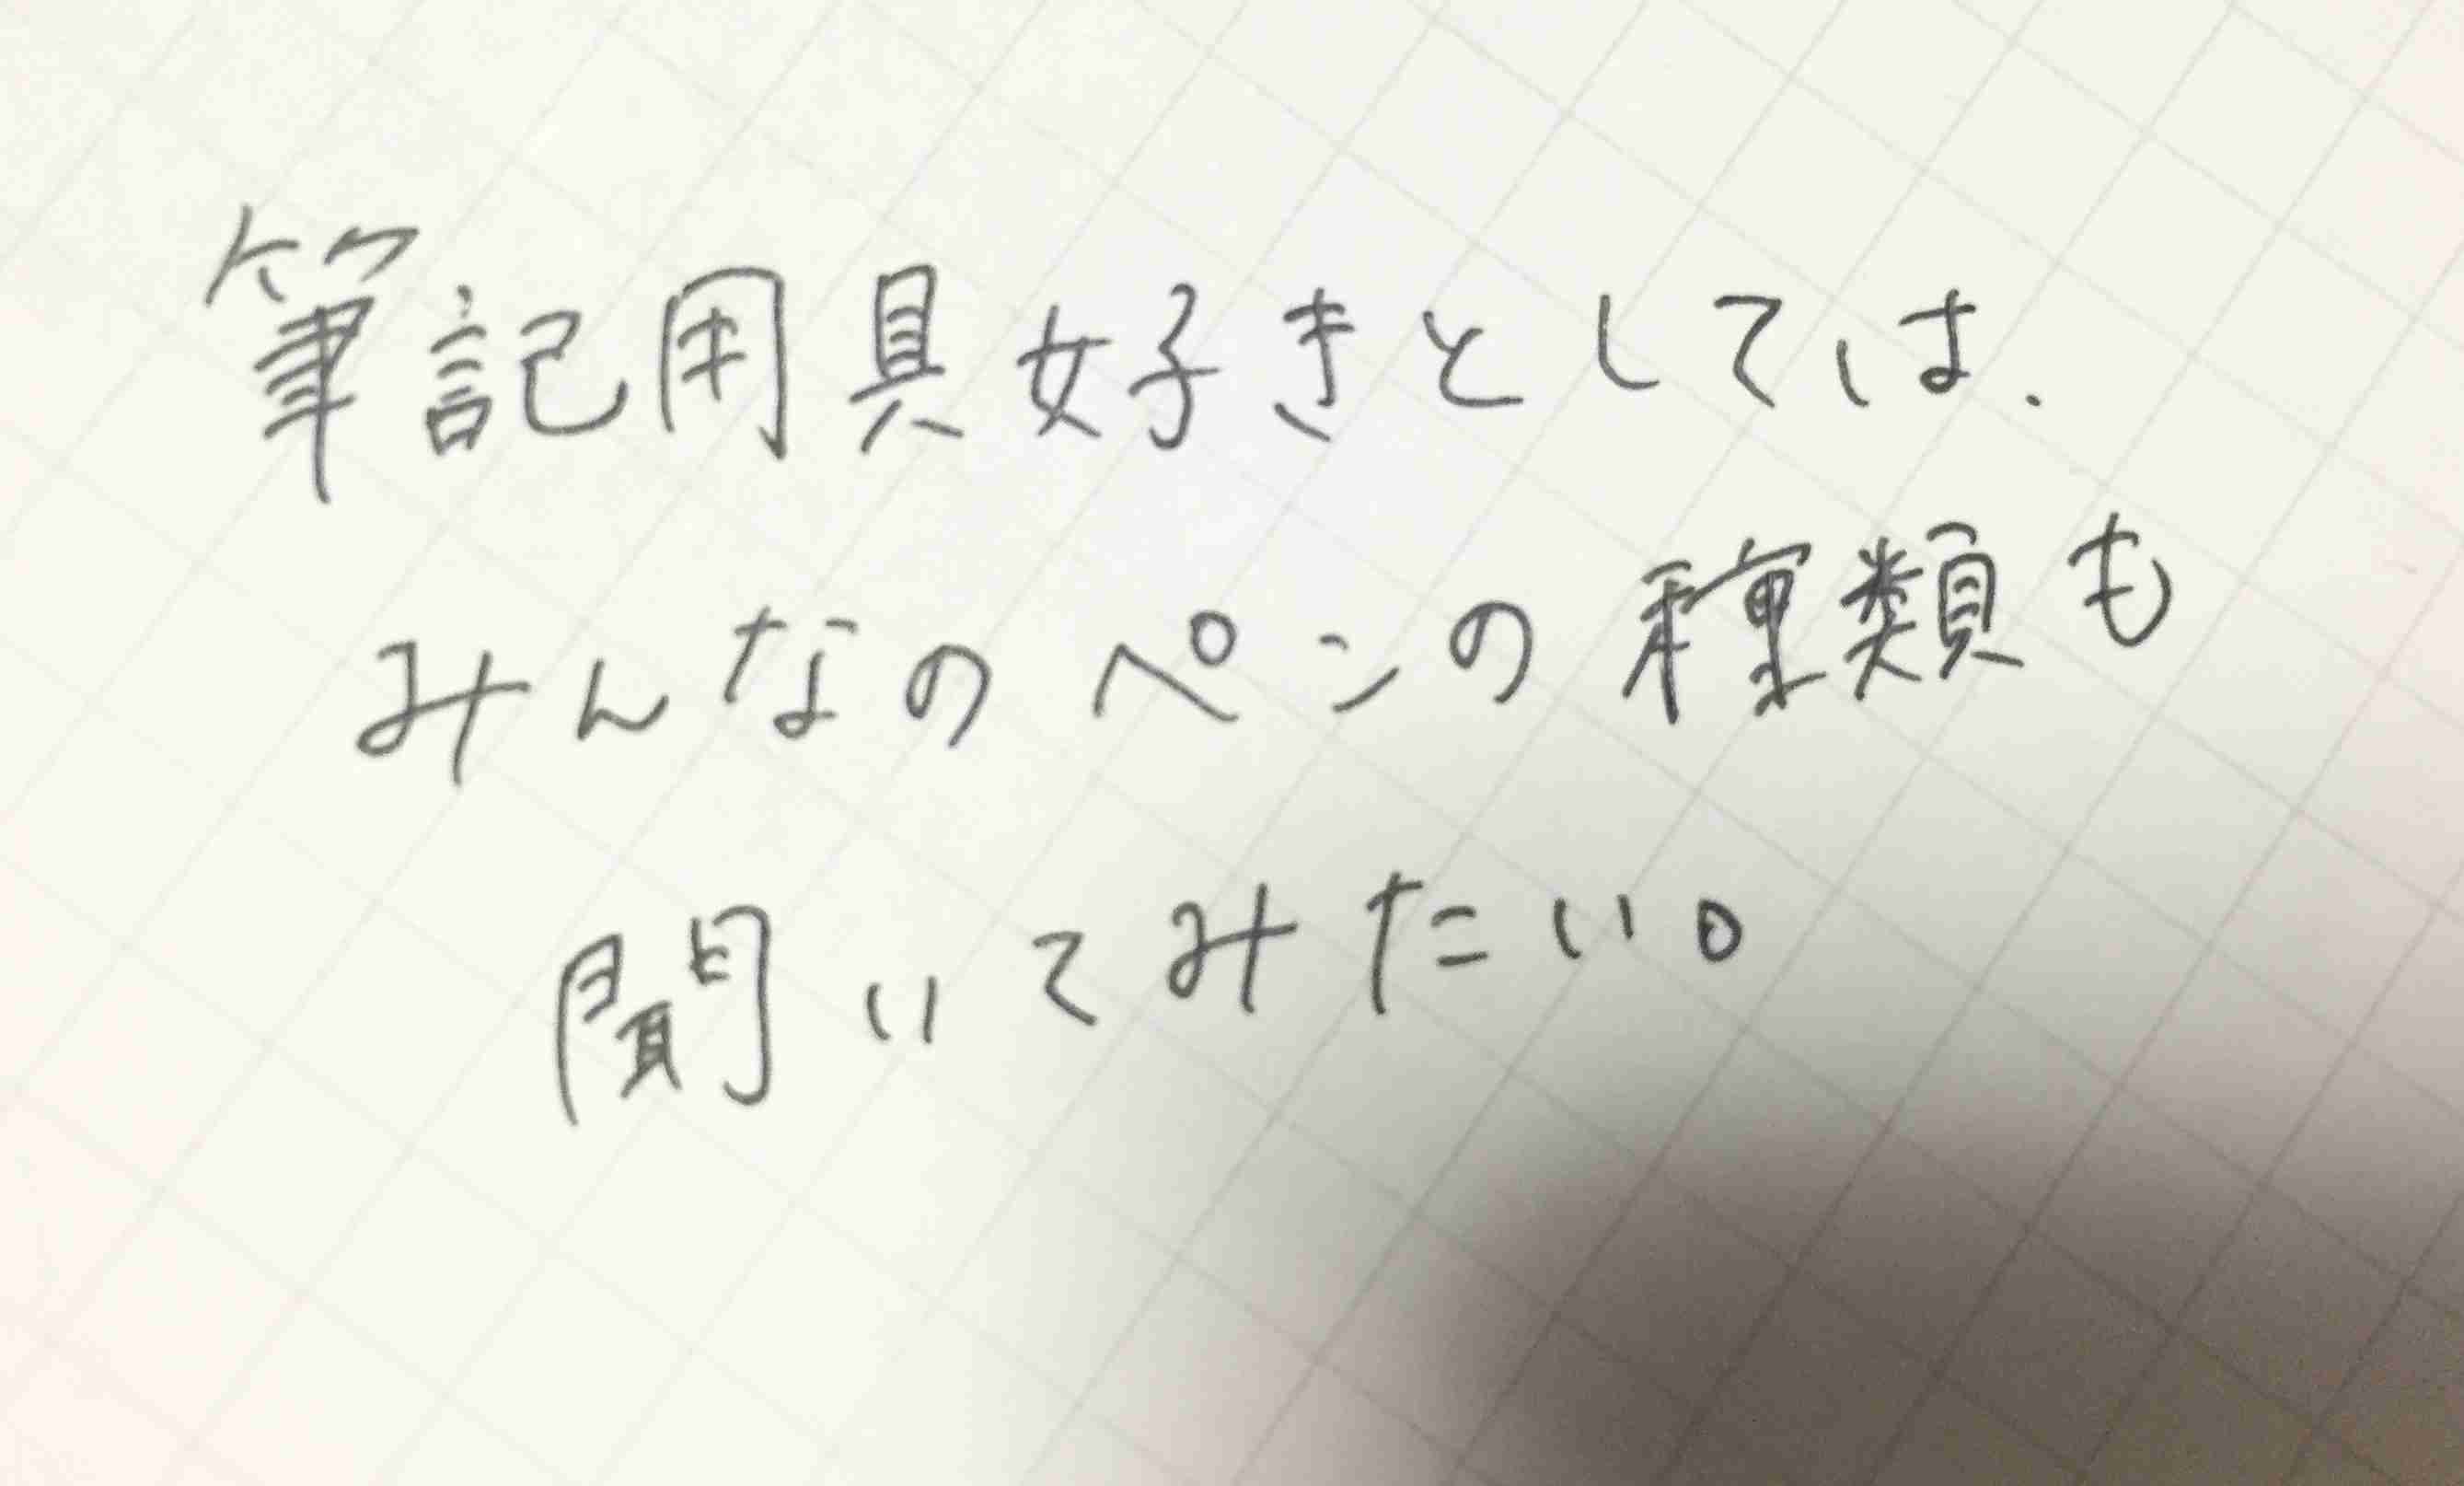 筆記用具好きとしては.
みんなのペンの種類も
聞いてみたい。